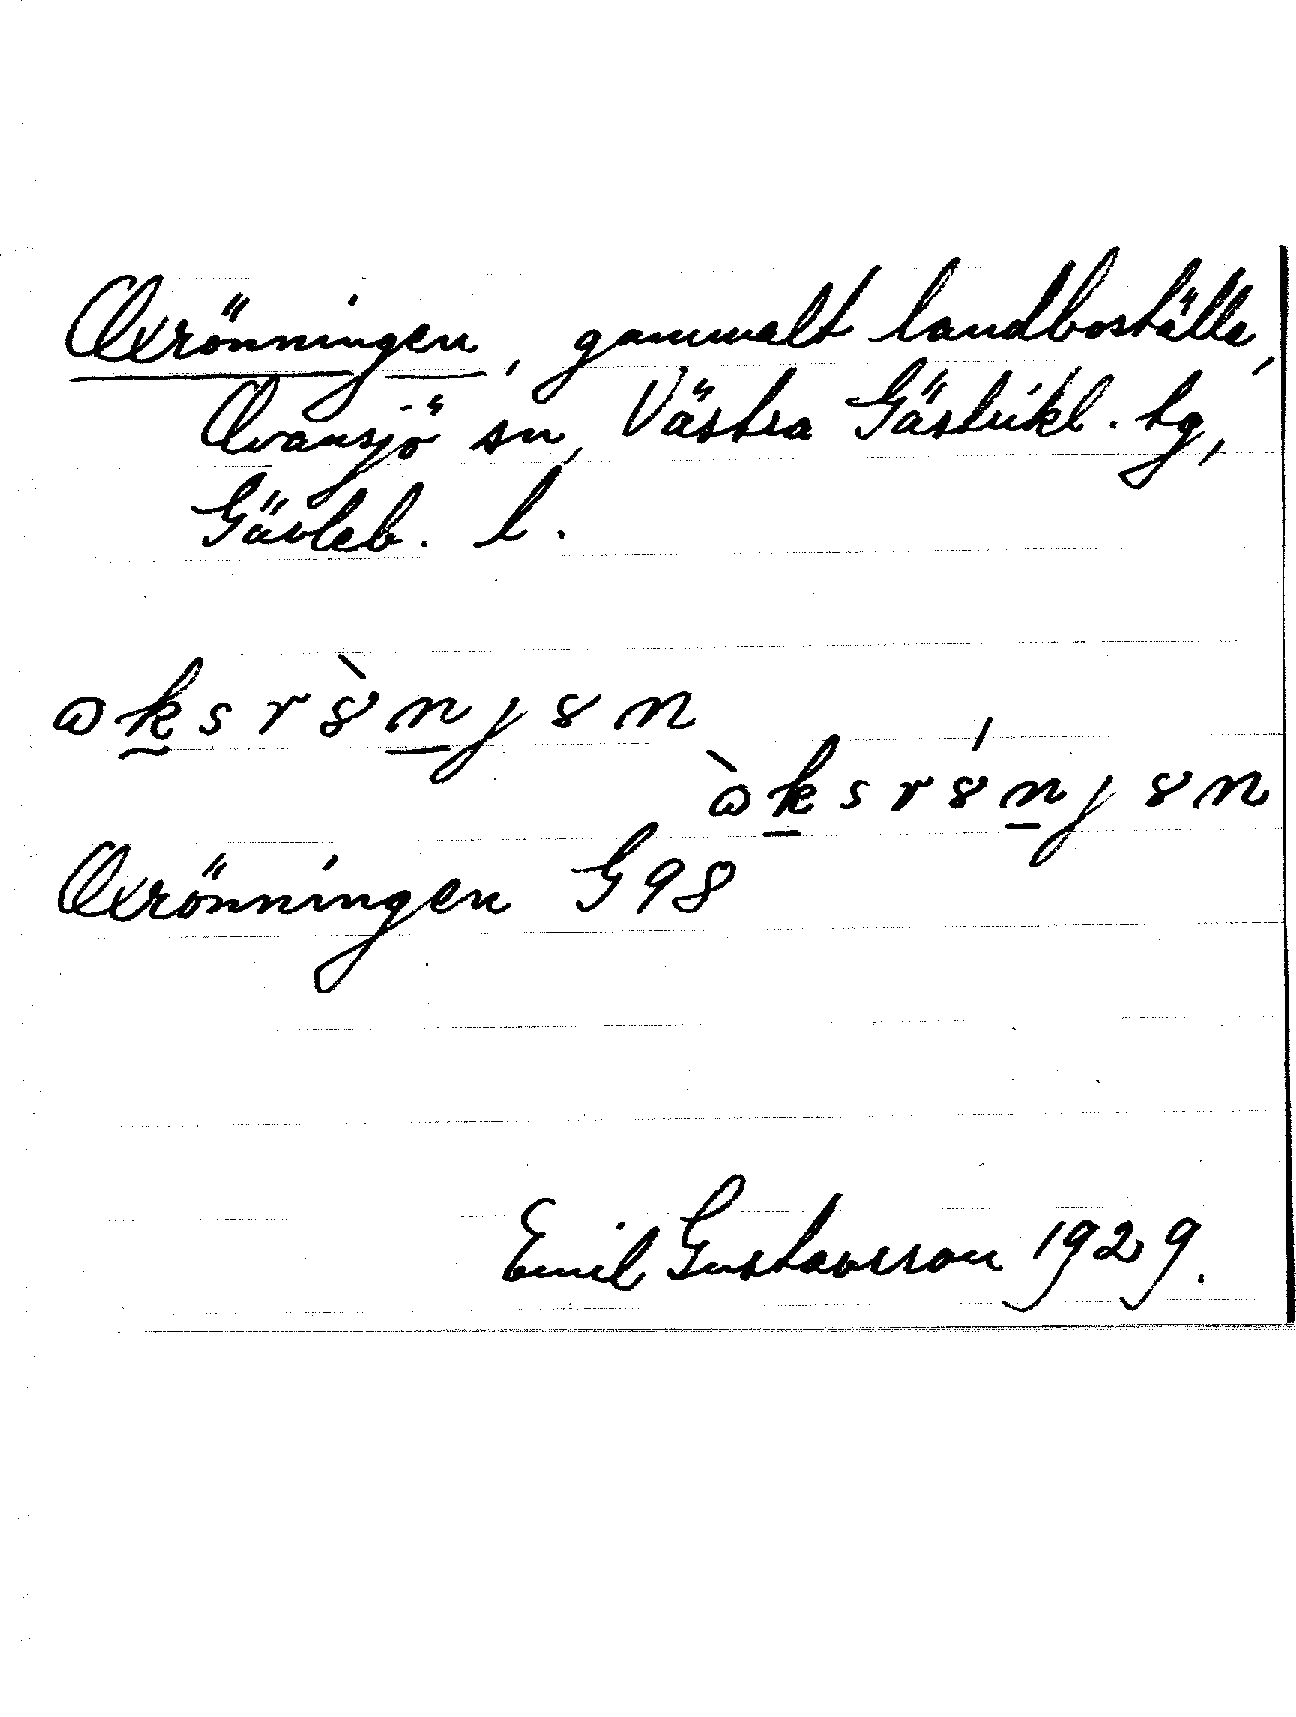 Oxrönningen, gammalt landboställe,
Ovansjö sn, Västra Gästrikl. tg,
Gävleb. l.
ɷksrȣ̀nȷȣn
ɷ̀ksrȣ́nȷȣn
Oxrönningen G 98
Emil Gustavsson 1929.